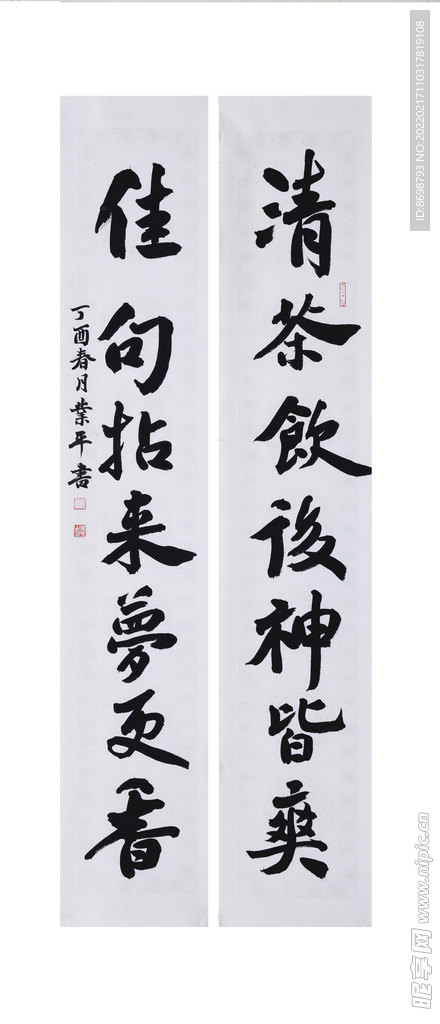 清茶飲後神皆爽
佳句拈来夢更香
丁酉春月業平書
ID:8698793 NO:20220217110317819108
昵享网 www.nipic.cn